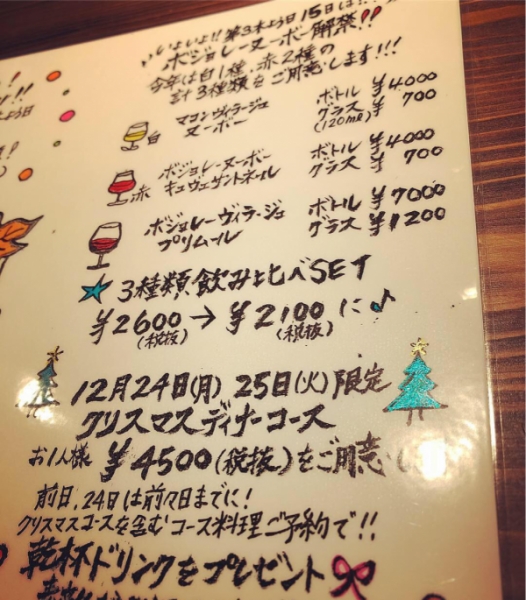 いよいよ!! 第3木よう日 15日は!!
ボジョレーヌーボー解禁!!
今年は白1種、赤2種の
計3種類をご用意します!!!
白 マコンヴィラージュ ヌーボー
ボトル ¥4000
グラス ¥700
(120ml)
赤 ボジョレーヌーボー キュヴェサントネール
ボトル ¥4000
グラス ¥700
ボジョレーヴィラージュ プリムール
ボトル ¥7000
グラス ¥1200
★ 3種類飲み比べSET
¥2600 → ¥2100 に♪
(税抜) (税抜)
12月24日(月) 25日(火) 限定
クリスマスディナーコース
お1人様 ¥4500(税抜)をご用意
前日、24日は前々日までに!
クリスマスコースを含むコース料理ご予約で!!
乾杯ドリンクをプレゼント